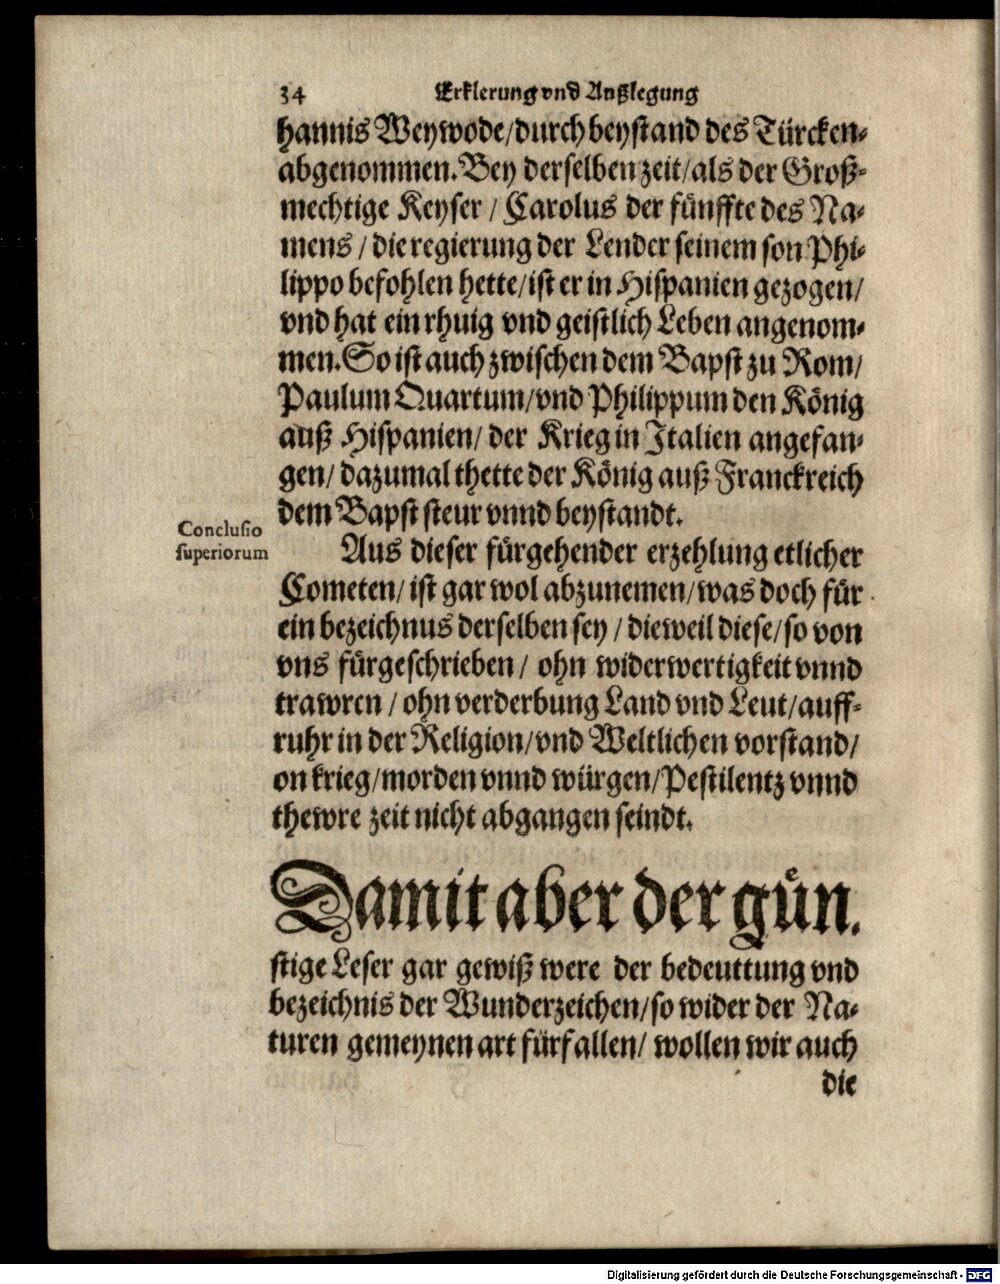 34 Erklerung vnd Außlegung
hannis Weywode/durch beystand des Türcken-
abgenommen. Bey derselben zeit/als der Groß-
mechtige Keyser / Carolus der fünffte des Na-
mens / die regierung der Lender seinem son Phi-
lippo befohlen hette/ist er in Hispanien gezogen/
vnd hat ein rhuig vnd geistlich Leben angenom-
men. So ist auch zwischen dem Bapst zu Rom/
Paulum Quartum/vnd Philippum den König
auß Hispanien/ der Krieg in Italien angefan-
gen/ dazumal thette der König auß Franckreich
dem Bapst steur vnnd beystandt.
Conclusio
superiorum
Aus dieser fürgehender erzehlung etlicher
Cometen/ ist gar wol abzunemen/was doch für
ein bezeichnus derselben sey / dieweil diese/so von
vns fürgeschrieben / ohn widerwertigkeit vnnd
trawren / ohn verderbung Land vnd Leut/auff-
ruhr in der Religion/vnd Weltlichen vorstand/
on krieg/morden vnnd würgen/Pestilentz vnnd
thewre zeit nicht abgangen seindt.
Damit aber der gün.
stige Leser gar gewiß were der bedeuttung vnd
bezeichnis der Wunderzeichen/so wider der Na-
turen gemeynen art fürfallen/ wollen wir auch
die
Digitalisierung gefördert durch die Deutsche Forschungsgemeinschaft - DFG